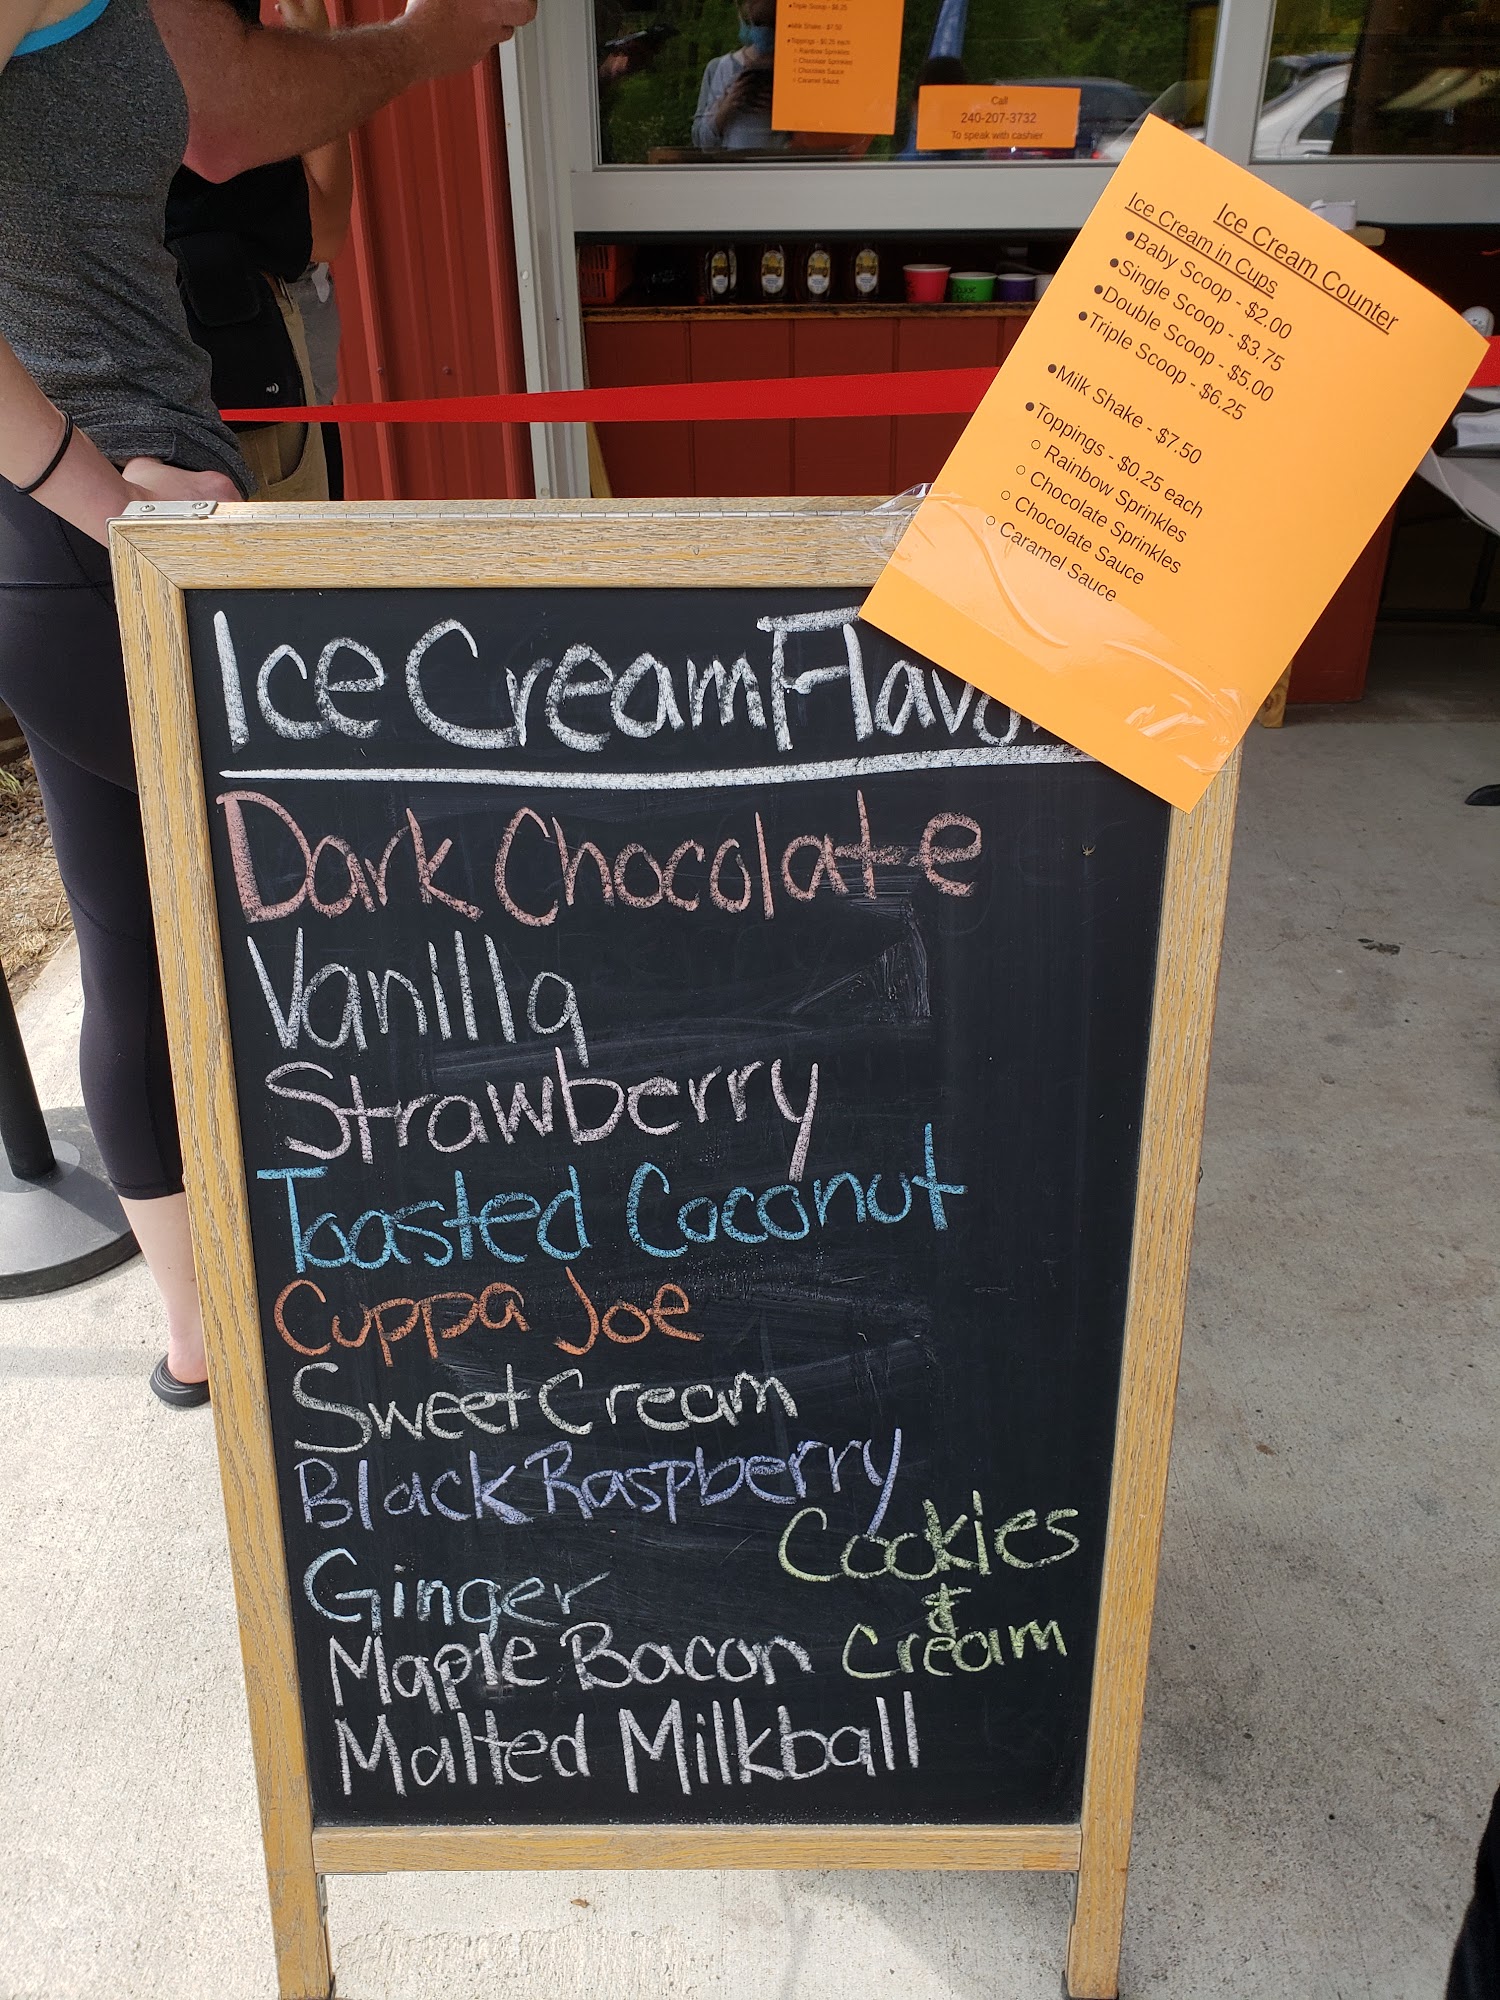 Triple Scoop - $6.25
Milk Shake - $7.50
Toppings - $0.25 each
Rainbow Sprinkles
Chocolate Sprinkles
Chocolate Sauce
Caramel Sauce
Call
240-207-3732
To speak with cashier
Ice Cream Counter
Ice Cream in Cups
Baby Scoop - $2.00
Single Scoop - $3.75
Double Scoop - $5.00
Triple Scoop - $6.25
Milk Shake - $7.50
Toppings - $0.25 each
Rainbow Sprinkles
Chocolate Sprinkles
Chocolate Sauce
Caramel Sauce
Ice Cream Flavo
Dark Chocolate
Vanilla
Strawberry
Toasted Coconut
Cuppa Joe
Sweet Cream
Black Raspberry
Ginger
Maple Bacon
Malted Milkball
Cookies
&
Cream